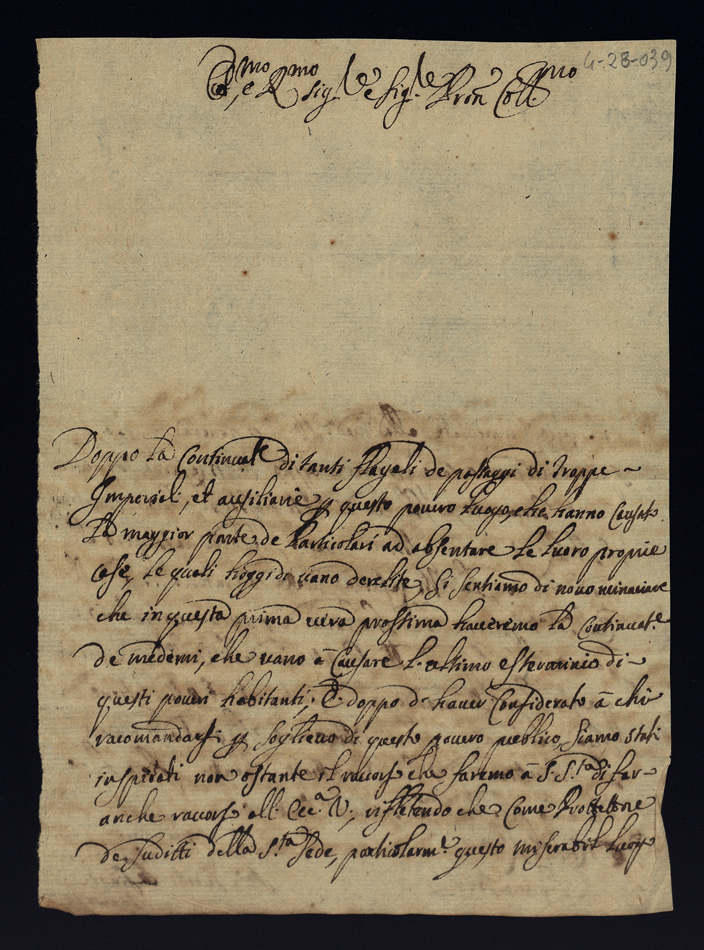 4-28-039
Em.mo, e R.mo Sig.re e Sig.re Pron Coll.mo
Doppo la Continuat.e di tanti flageli de passaggi di Troppe
Imperiali, et ausiliarie p questo povero luogo, che hanno Causato
la maggior parte de Particolari ad absentare le luoro proprie
Case, le quali hoggidi vano derelite, si sentiamo di novo minaciare
che in questa prima vera prossima haveremo la Continuat.e
de medemi, che vano à Causare l'ultimo esterminio di
questi poveri habitanti; E doppo d'haver Considerato à chi
racomandarsi p soglievo di questo povero publico, siamo stati
inspirati non ostante il racorso che faremo à S. S.tà di far
anche racorso all'Ecc.a V., riflettendo che Come Protettore
de sudditi della S.ta Sede, particolarm.e questo miserabil luogo